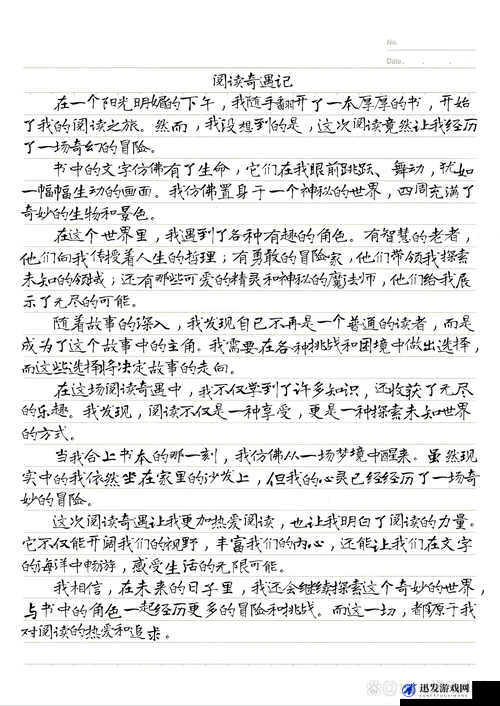 No.
Date . .
阅读奇遇记
在一个阳光明媚的下午，我随手翻开了一本厚厚的书，开始
了我的阅读之旅。然而，我没想到的是，这次阅读竟然让我经历
了一场奇幻的冒险。
书中的文字仿佛有了生命，它们在我眼前跳跃、舞动，犹如
一幅幅生动的画面。我仿佛置身于一个神秘的世界，四周充满了
奇妙的生物和景色。
在这个世界里，我遇到了各种有趣的角色。有智慧的老者，
他们向我传授着人生的哲理；有勇敢的冒险家，他们带领我探索
未知的领域；还有那些可爱的精灵和神秘的魔法师，他们给我展
示了无尽的可能。
随着故事的深入，我发现自己不再是一个普通的读者，而是
成为了这个故事中的主角。我需要在各种挑战和困境中做出选择，
而这些选择将决定故事的走向。
在这场阅读奇遇中，我不仅学到了许多知识，还收获了无尽
的乐趣。我发现，阅读不仅是一种享受，更是一种探索未知世界
的方式。
当我合上书本的那一刻，我仿佛从一场梦境中醒来。虽然现
实中的我依然坐在家里的沙发上，但我的心灵已经经历了一场奇
妙的冒险。
这次阅读奇遇让我更加热爱阅读，也让我明白了阅读的力量。
它不仅能开阔我们的视野，丰富我们的内心，还能让我们在文字
的海洋中畅游，感受生活的无限可能。
我相信，在未来的日子里，我还会继续探索这个奇妙的世界，
与书中的角色一起经历更多的冒险和挑战。而这一切，都源于我
对阅读的热爱和追求。
迅发游戏网
XUNFAYOUXIWANG